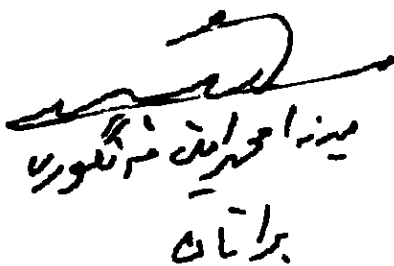 میرزا محمد امین مەنگوری
براتان